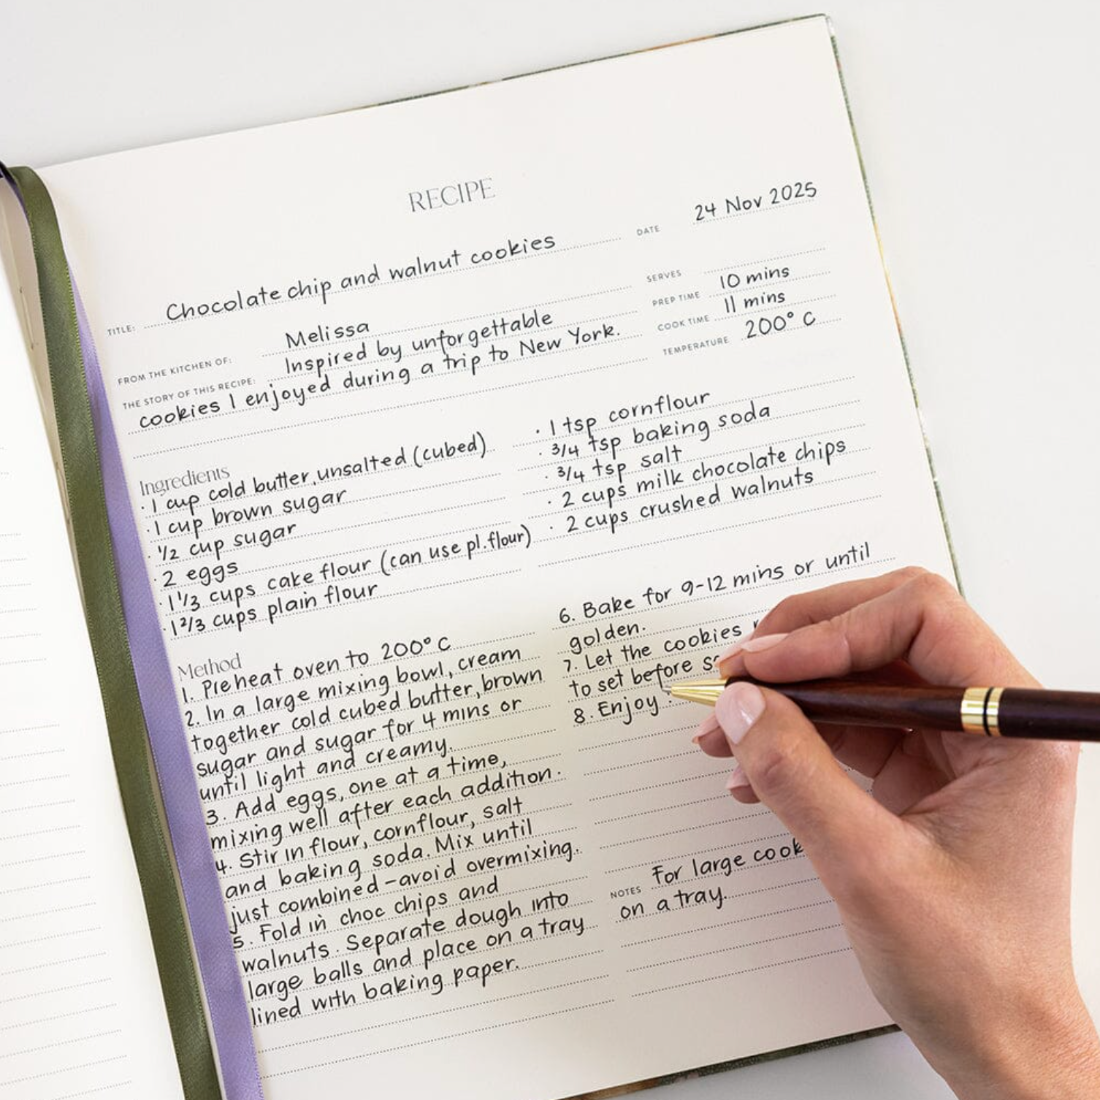 RECIPE
DATE 24 Nov 2025
TITLE: Chocolate chip and walnut cookies
SERVES
FROM THE KITCHEN OF: Melissa
PREP TIME 10 mins
THE STORY OF THIS RECIPE: Inspired by unforgettable
COOK TIME 11 mins
cookies I enjoyed during a trip to New York.
TEMPERATURE 200° C
Ingredients
· 1 cup cold butter, unsalted (cubed)
· 1 cup brown sugar
· 1/2 cup sugar
· 2 eggs
· 1 1/3 cups cake flour (can use pl.flour)
· 1 2/3 cups plain flour
· 1 tsp cornflour
· 3/4 tsp baking soda
· 3/4 tsp salt
· 2 cups milk chocolate chips
· 2 cups crushed walnuts
Method
1. Preheat oven to 200° C
2. In a large mixing bowl, cream
together cold cubed butter, brown
sugar and sugar for 4 mins or
until light and creamy.
3. Add eggs, one at a time,
mixing well after each addition.
4. Stir in flour, cornflour, salt
and baking soda. Mix until
just combined - avoid overmixing.
5. Fold in choc chips and
walnuts. Separate dough into
large balls and place on a tray
lined with baking paper.
6. Bake for 9-12 mins or until
golden.
7. Let the cookies
to set before
8. Enjoy
NOTES For large
on a tray.